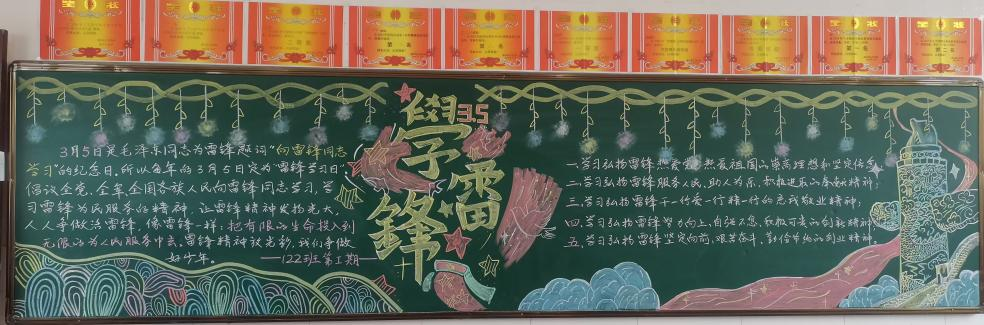 3月5日是毛泽东同志为雷锋题词“向雷锋同志
学习”的纪念日,所以每年的3月5日定为“雷锋学习日”
倡议全党、全军、全国各族人民向雷锋同志学习,学
习雷锋为民服务的精神,让雷锋精神发扬光大,
人人争做活雷锋,像雷锋一样,把有限的生命投入到
无限的为人民服务中去,雷锋精神放光彩,我们争做
好少年。
122班第1期
3.5
学
雷
锋
一.学习弘扬雷锋热爱党,热爱祖国的崇高理想和坚定信念;
二.学习弘扬雷锋服务人民,助人为乐,积极进取的奉献精神;
三.学习弘扬雷锋干一行爱一行精一行的忠我敬业精神;
四.学习弘扬雷锋努力向上,自强不息,积极可爱的创新精神;
五.学习弘扬雷锋坚定向前,艰苦奋斗,勤俭节约的创业精神。